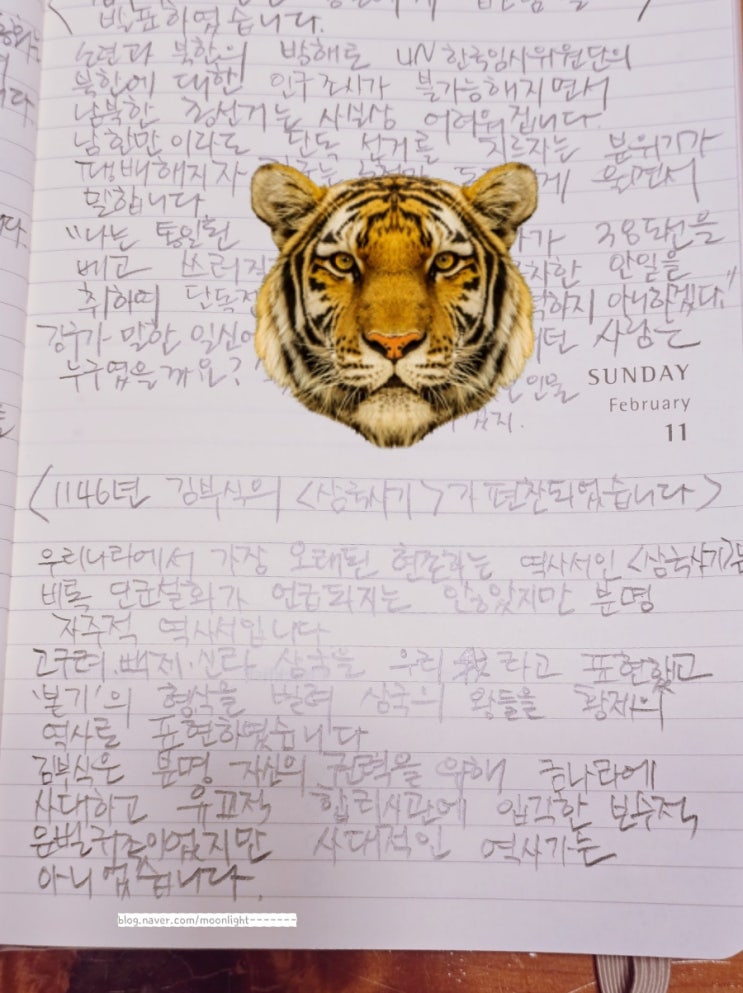 발표하였습니다.
소련과 북한의 방해로 UN한국임시위원단의
북한에 대한 인구조사가 불가능해지면서
남북한 총선거는 사실상 어려워집니다.
남한만이라도 단독 선거를 치르자는 분위기가
팽배해지자 원면서
말합니다
"나는 통일된 38도선을
베고 쓰러 안일을
취하여 단독 하지 아니하겠다."
강우가 말한 일신에 사람은
누구였을까요? 인물
SUNDAY
February
11
<1146년 김부식의 <삼국사기>가 편찬되었습니다>
우리나라에서 가장 오래된 현존하는 역사서인 <삼국사기>는
비록 단군설화가 언급되지는 않았지만 분명
자주적 역사서입니다
고구려.빽제.신라 삼국을 우리 라고 표현했고
'본기'의 형식을 빌려 삼국의 왕들을 황제의
역사를 표현하였습니다
김부식은 분명 자신의 권력을 위해 금나라에
사대하고 유교적 합리사관에 입각한 보수적
문벌귀족이었지만 사대적인 역사가는
아니었습니다.
blog.naver.com/moonlight-------